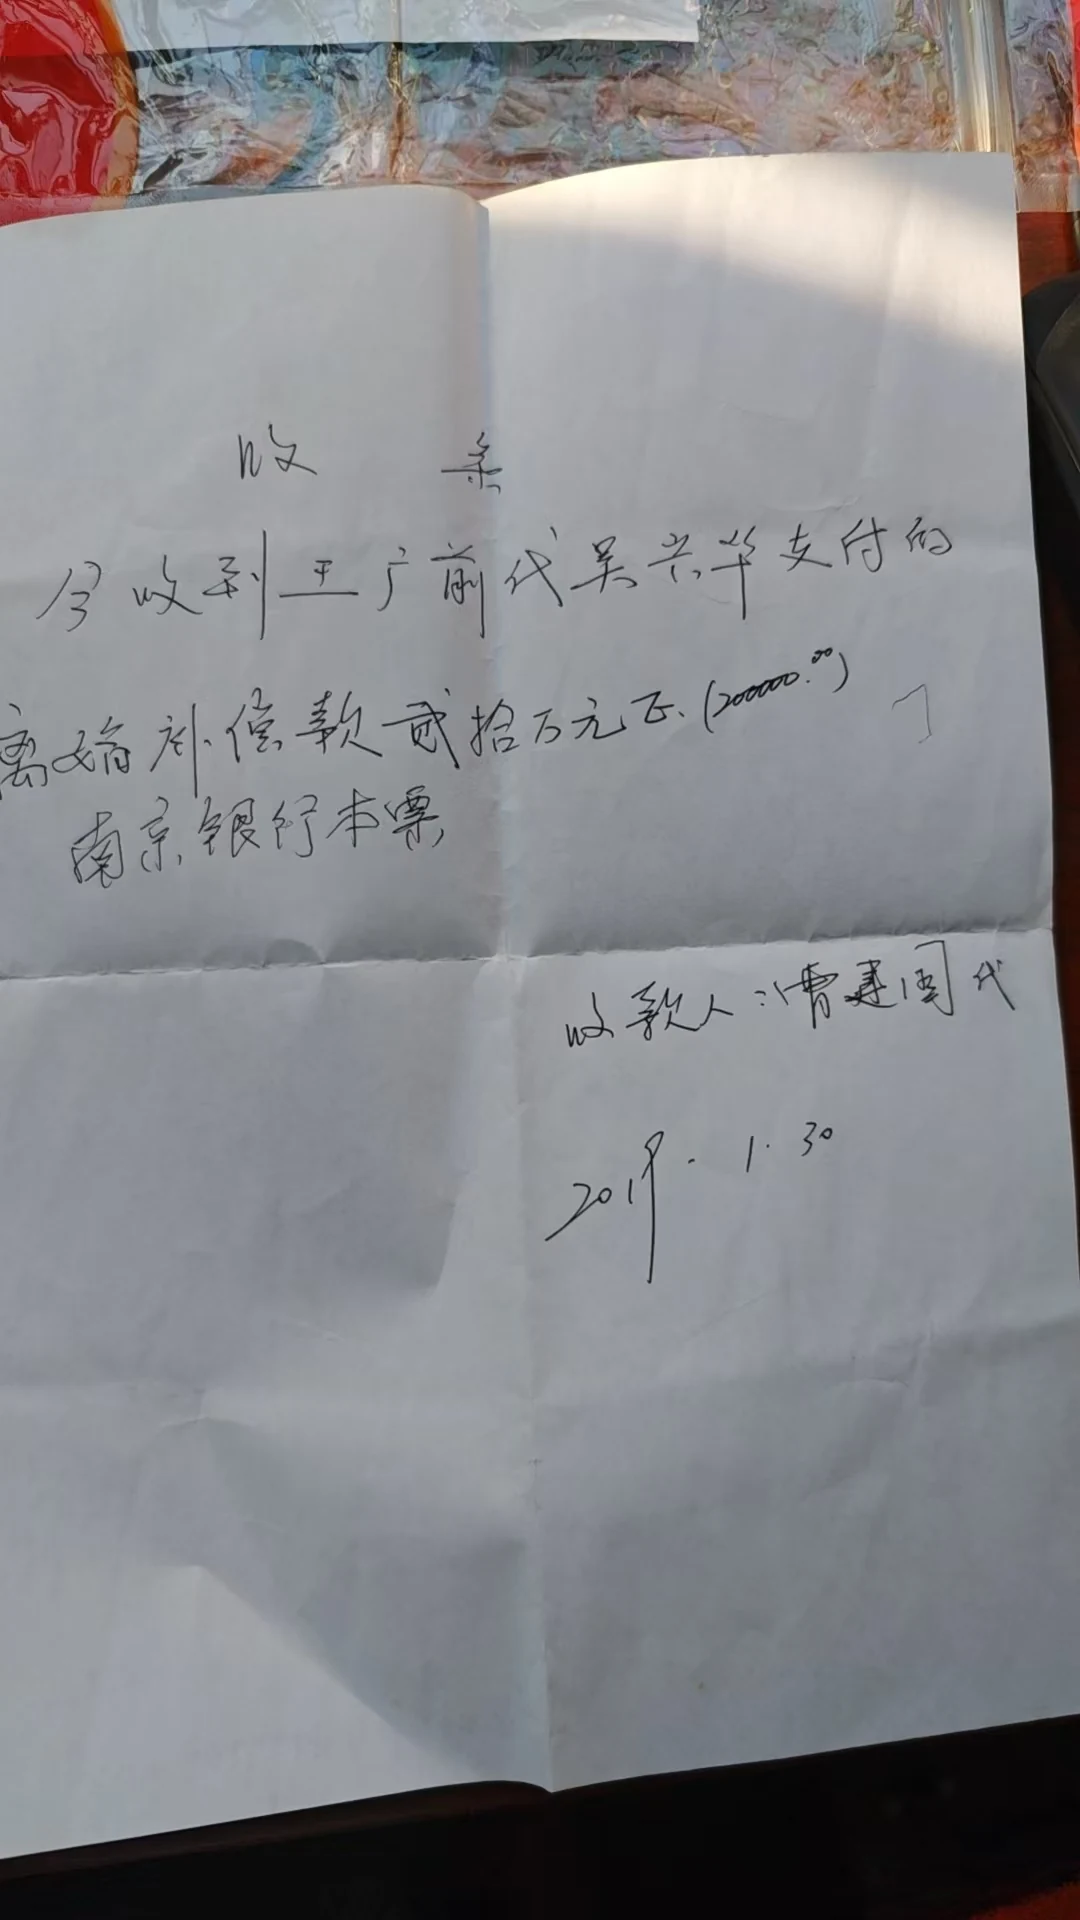 收 条
今收到王广前代吴兴华支付的
离婚补偿款贰拾万元正.(200000.00)
南京银行本票
收款人:曹建国代
2019.1.30